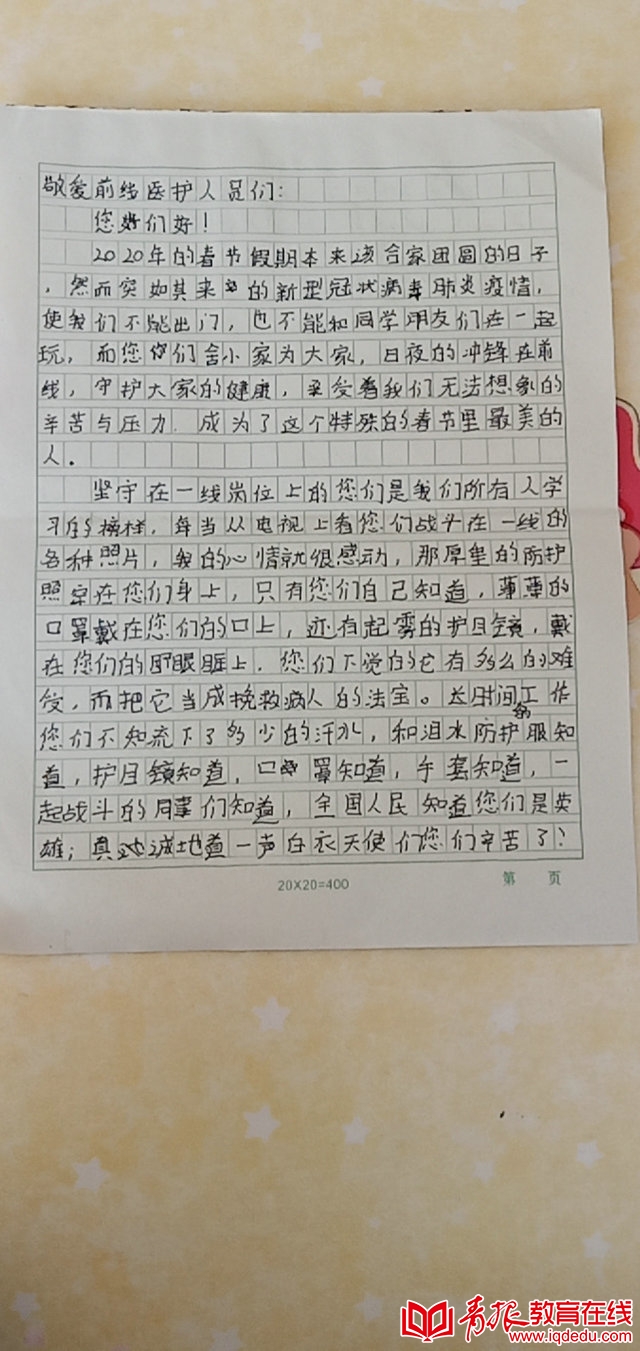 敬爱前线医护人员们：
您好们好！
2020年的春节假期本来该合家团圆的日子
，然而突如其来的新型冠状病毒肺炎疫情，
使我们不能出门，也不能和同学朋友们在一起
玩，而您你们舍小家为大家，日夜的冲锋在前
线，守护大家的健康，承受着我们无法想象的
辛苦与压力．成为了这个特殊的春节里最美的
人．
坚守在一线岗位上的您们是我们所有人学
习的榜样，每当从电视上看您们战斗在一线的
各种照片，我的心情就很感动，那厚重的防护
照穿在您们身上，只有您们自己知道，薄薄的
口罩戴在您们的口上，还有起雾的护目镜，戴
在您们的眼眶上．您们不觉的它有多么的难
受，而把它当成挽救病人的法宝。长时间的工作
您们不知流下了多少的汗水，和泪水防护服知
道，护目镜知道，口罩知道，手套知道，一
起战斗的同事们知道，全国人民知道您们是英
雄；真诚地道一声白衣天使们您们辛苦了？
20X20=400
第 页
青报教育在线
www.iqdedu.com